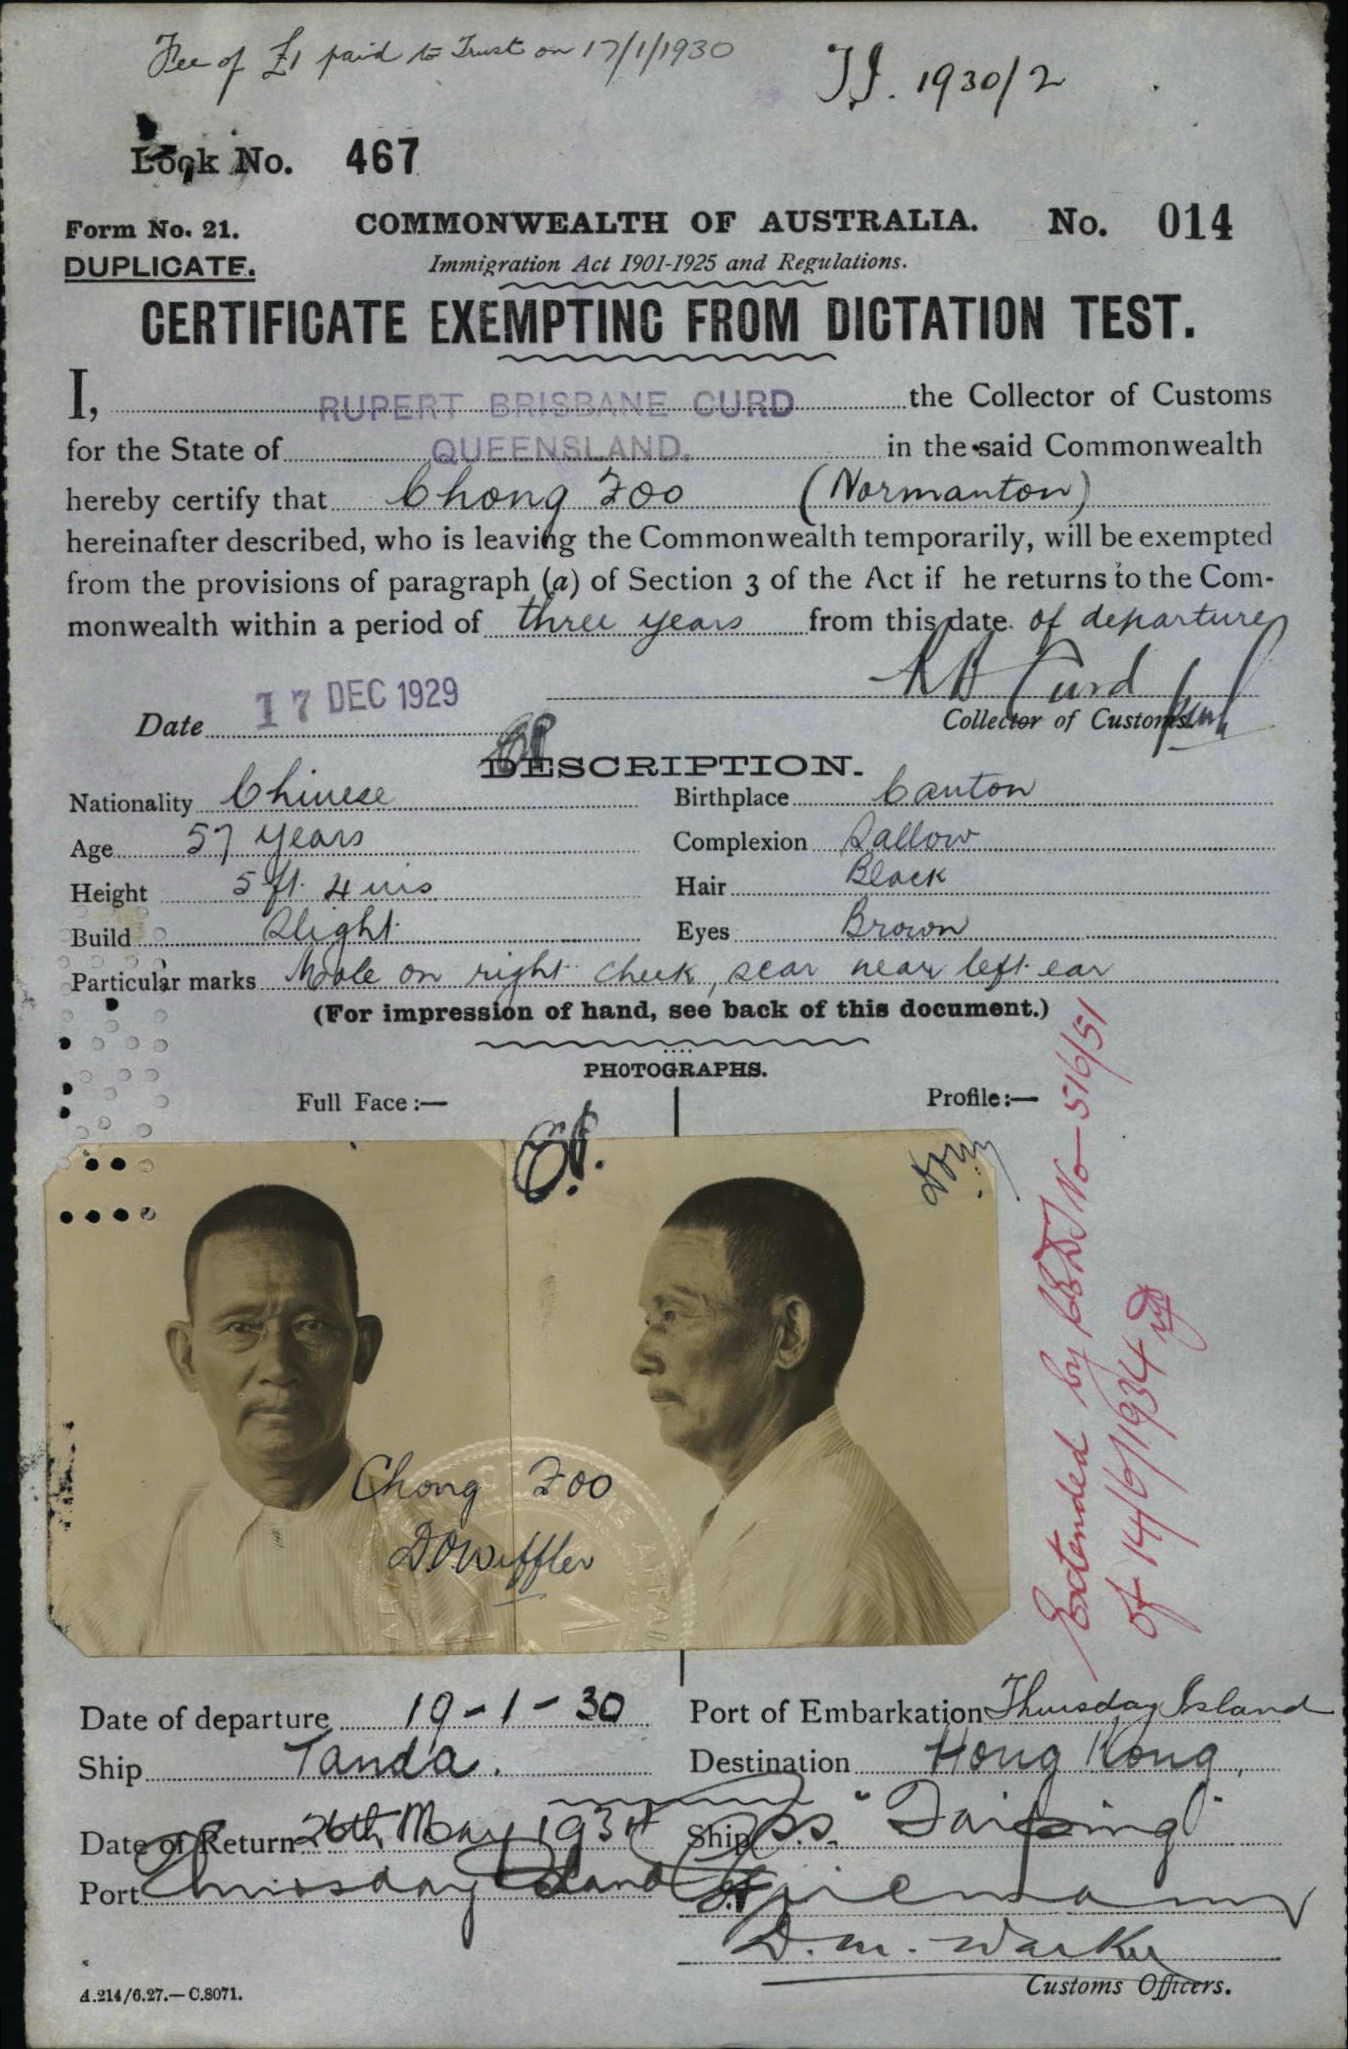 Fee of £1 paid to Trust on 17/1/1930
T.I. 1930/2
Book No. 467
Form No. 21.
COMMONWEALTH OF AUSTRALIA.
No. 014
DUPLICATE.
Immigration Act 1901-1925 and Regulations.
CERTIFICATE EXEMPTING FROM DICTATION TEST.
I, RUPERT BRISBANE CURD the Collector of Customs
for the State of QUEENSLAND. in the said Commonwealth
hereby certify that Chong Foo (Normanton)
hereinafter described, who is leaving the Commonwealth temporarily, will be exempted
from the provisions of paragraph (a) of Section 3 of the Act if he returns to the Com-
monwealth within a period of three years from this date of departure
R B Curd
Date 17 DEC 1929
Collector of Customs
DESCRIPTION.
Nationality Chinese Birthplace Canton
Age 57 years Complexion Sallow
Height 5 ft. 4 ins Hair Black
Build Slight Eyes Brown
Particular marks Mole on right cheek, scar near left ear
(For impression of hand, see back of this document.)
PHOTOGRAPHS.
Full Face:— Profile:—
Chong Foo
Extended by CEDT No 516/51
of 14/6/1934
Date of departure 19-1-30 Port of Embarkation Thursday Island
Ship Tanda. Destination Hong Kong,
Date of Return 26th May 1934 Ship SS "Taiping"
Port Thursday Island
D. M. Walker
Customs Officers.
A.214/6.27.—C.8071.